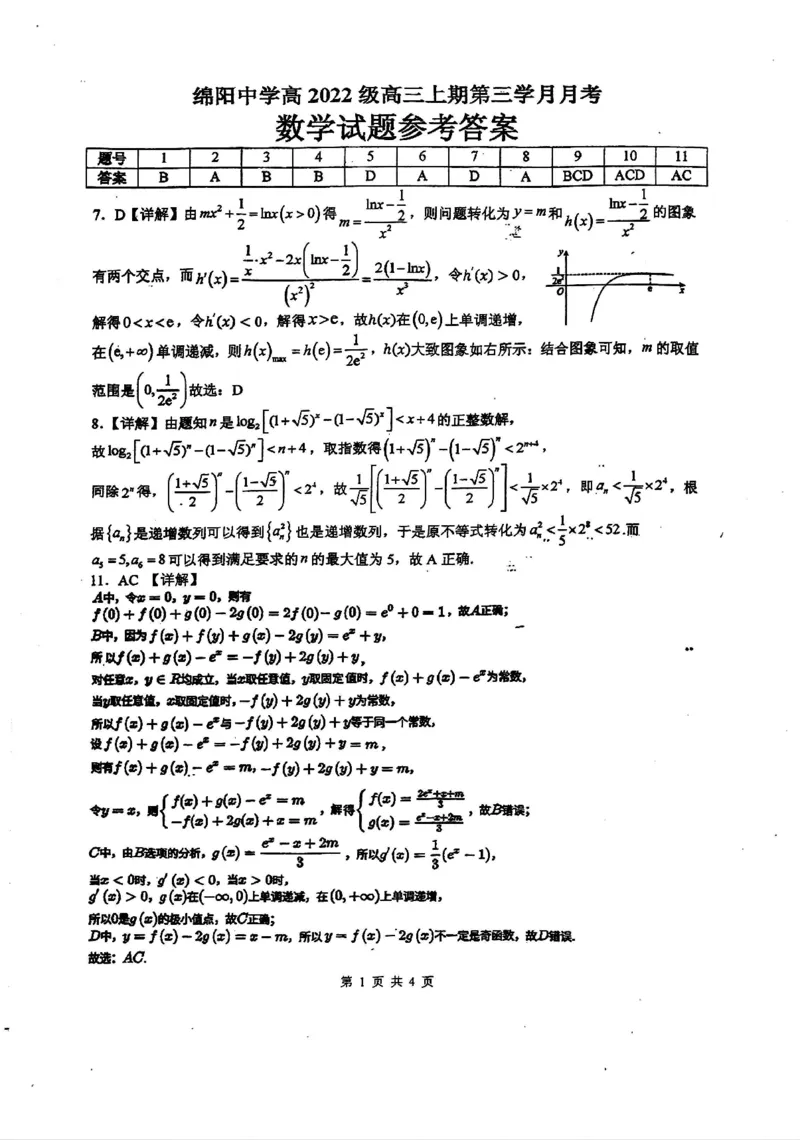 绵阳中学高 2022 级高三上期第三学月月考
数学试题参考答案
题号 1 2 3 4 5 6 7 8 9 10 11
答案 B A B B D A D A BCD ACD AC
7. D【详解】由 mx²+1/2=lnx(x>0)得 m=(lnx-1/2)/x²，则问题转化为 y=m和 h(x)=(lnx-1/2)/x² 的图象
有两个交点，而 h′(x)=(1/x·x²-2x(lnx-1/2))/(x²)²=2(1-lnx)/x³，令h′(x)>0，
y 1/2e² O e x
解得0<x<e，令h′(x)<0，解得x>e，故h(x)在(0,e)上单调递增，
在(e,+∞)单调递减，则h(x)max=h(e)=1/2e²，h(x)大致图象如右所示：结合图象可知，m 的取值
范围是(0,1/2e²)故选：D
8.【详解】由题知n是log₂[(1+√5)ˣ-(1-√5)ˣ]<x+4的正整数解，
故log₂[(1+√5)ⁿ-(1-√5)ⁿ]<n+4，取指数得(1+√5)ⁿ-(1-√5)ⁿ<2ⁿ⁺⁴，
同除2ⁿ得，((1+√5)/2)ⁿ-((1-√5)/2)ⁿ<2⁴，故 1/√5[((1+√5)/2)ⁿ-((1-√5)/2)ⁿ]<1/√5×2⁴，即aₙ<1/√5×2⁴，根
据{aₙ}是递增数列可以得到{aₙ²}也是递增数列，于是原不等式转化为aₙ²<1/5×2⁸<52.而
a₅=5,a₆=8可以得到满足要求的n的最大值为5，故A正确.
11. AC 【详解】
A中，令x=0，y=0，则有
f(0)+f(0)+g(0)-2g(0)=2f(0)-g(0)=e⁰+0=1，故A正确；
B中，因为f(x)+f(y)+g(x)-2g(y)=eˣ+y，
所以f(x)+g(x)-eˣ=-f(y)+2g(y)+y，
对任意x，y∈R均成立，当x取任意值，y取固定值时，f(x)+g(x)-eˣ为常数，
当y取任意值，x取固定值时，-f(y)+2g(y)+y为常数，
所以f(x)+g(x)-eˣ与-f(y)+2g(y)+y等于同一个常数，
设f(x)+g(x)-eˣ=-f(y)+2g(y)+y=m，
则有f(x)+g(x)-eˣ=m，-f(y)+2g(y)+y=m，
令y=x，则{f(x)+g(x)-eˣ=m -f(x)+2g(x)+x=m，解得{f(x)=(2eˣ+x+m)/3 g(x)=(eˣ-x+2m)/3，故B错误；
C中，由B选项的分析，g(x)=(eˣ-x+2m)/3，所以g′(x)=1/3(eˣ-1)，
当x<0时，g′(x)<0，当x>0时，
g′(x)>0，g(x)在(-∞,0)上单调递减，在(0,+∞)上单调递增，
所以0是g(x)的极小值点，故C正确；
D中，y=f(x)-2g(x)=x-m，所以y=f(x)-2g(x)不一定是奇函数，故D错误.
故选：AC.
第 1 页 共 4 页